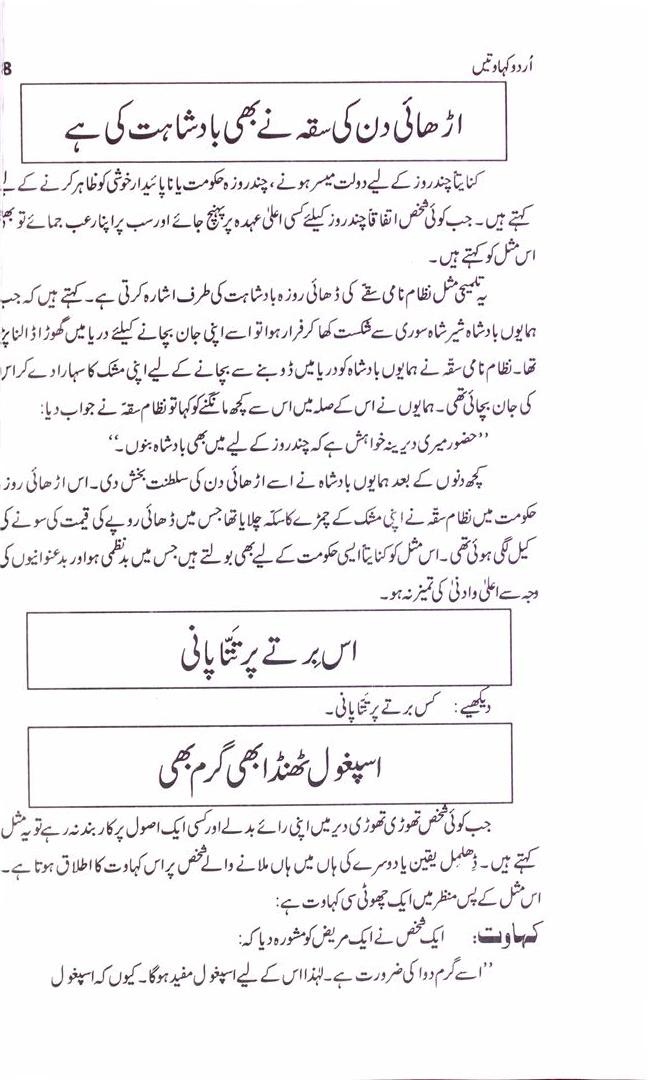 اُردو کہاوتیں
8
اڑھائی دن کی سقہ نے بھی بادشاہت کی ہے
کنایتاً چند روز کے لیے دولت میسر ہونے، چند روزہ حکومت یا ناپائیدار خوشی کو ظاہر کرنے کے
کہتے ہیں۔ جب کوئی شخص اتفاقاً چند روز کیلئے کسی اعلیٰ عہدہ پر پہنچ جائے اور سب پر اپنا رعب جمائے تو
اس مثل کو کہتے ہیں۔
یہ تلمیحی مثل نظام نامی سقے کی ڈھائی روزہ بادشاہت کی طرف اشارہ کرتی ہے۔ کہتے ہیں کہ جب
ہمایوں بادشاہ شیر شاہ سوری سے شکست کھا کر فرار ہوا تو اسے اپنی جان بچانے کیلئے دریا میں گھوڑا ڈالنا
تھا۔ نظام نامی سقّہ نے ہمایوں بادشاہ کو دریا میں ڈوبنے سے بچانے کے لیے اپنی مشک کا سہارا دے کر اس
کی جان بچائی تھی۔ ہمایوں نے اس کے صلہ میں اس سے کچھ مانگنے کو کہا تو نظام سقہ نے جواب دیا:
’’حضور میری دیرینہ خواہش ہے کہ چند روز کے لیے میں بھی بادشاہ بنوں۔‘‘
کچھ دنوں کے بعد ہمایوں بادشاہ نے اسے اڑھائی دن کی سلطنت بخش دی۔ اس اڑھائی روزہ
حکومت میں نظام سقّہ نے اپنی مشک کے چمڑے کا سکّہ چلایا تھا جس میں ڈھائی روپے کی قیمت کی سونے کی
کیل لگی ہوئی تھی۔ اس مثل کو کنایتاً ایسی حکومت کے لیے بھی بولتے ہیں جس میں بدنظمی ہو اور بدعنوانیوں کی
وجہ سے اعلیٰ و ادنیٰ کی تمیز نہ ہو۔
اس بِرتے پر تَتّا پانی
دیکھیے: کس برتے پر تَتّا پانی۔
اسپغول ٹھنڈا بھی گرم بھی
جب کوئی شخص تھوڑی تھوڑی دیر میں اپنی رائے بدلے اور کسی ایک اصول پر کاربند نہ رہے تو یہ مثل
کہتے ہیں۔ ڈِھلمِل یقین یا دوسرے کی ہاں میں ہاں ملانے والے شخص پر اس کہاوت کا اطلاق ہوتا ہے۔
اس مثل کے پس منظر میں ایک چھوٹی سی کہاوت ہے:
کہاوت: ایک شخص نے ایک مریض کو مشورہ دیا کہ:
’’اسے گرم دوا کی ضرورت ہے۔ لہٰذا اس کے لیے اسپغول مفید ہوگا۔ کیوں کہ اسپغول